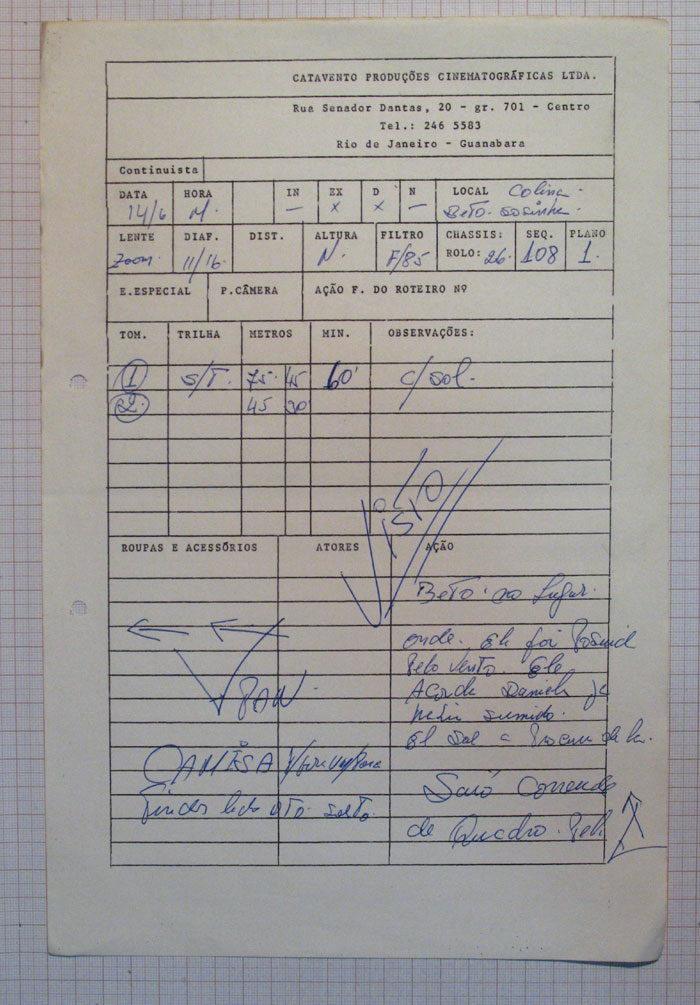 CATAVENTO PRODUÇÕES CINEMATOGRÁFICAS LTDA.
Rua Senador Dantas, 20 - gr. 701 - Centro
Tel.: 246 5583
Rio de Janeiro - Guanabara
Continuista
DATA HORA IN EX D N LOCAL Colina.
14/6 M. — x x — Beto sosinho.
LENTE DIAF. DIST. ALTURA FILTRO CHASSIS: SEQ. PLANO
Zoom 11/16 N. F/85 ROLO: 26. 108 1.
E.ESPECIAL P.CÂMERA AÇÃO F. DO ROTEIRO Nº
TOM. TRILHA METROS MIN. OBSERVAÇÕES:
1 S/T. 75 45 60' c/sol.
2 45 20
VISÃO
ROUPAS E ACESSÓRIOS ATORES AÇÃO
Beto no lugar
onde ele foi
Pelo vento. Ele
Acorda Daniela já
sumido.
El sae a
PAN.
CAMISA
Saió Correndo
de Quadro. Pela